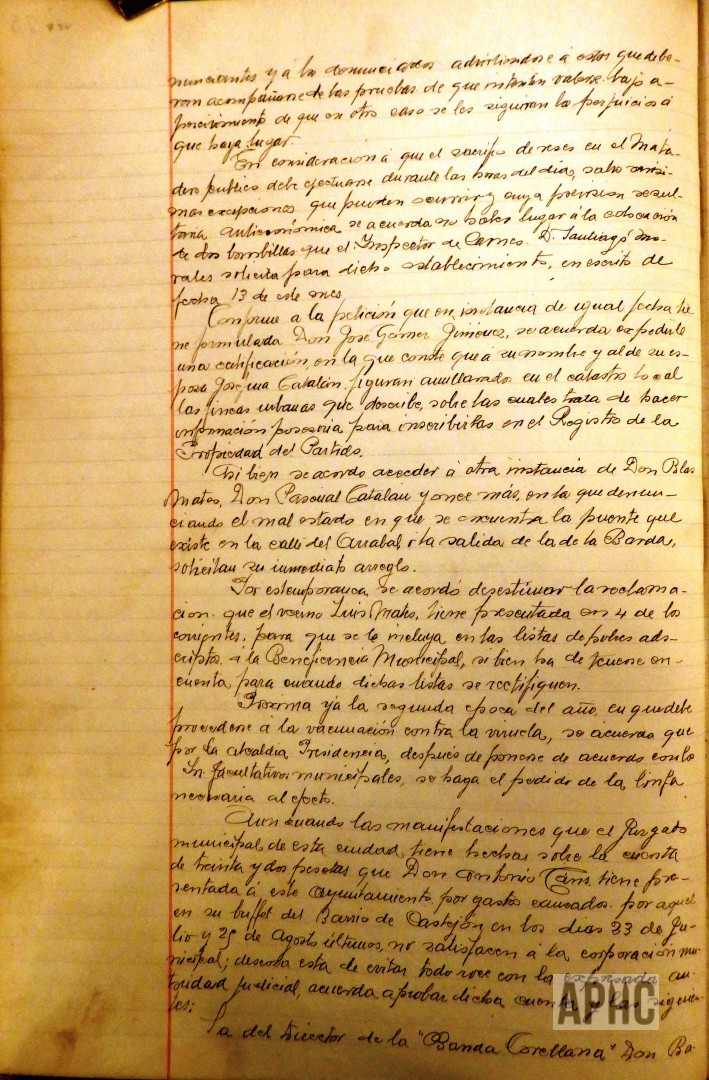 nunciantes y á los denunciados advirtiendose á estos que debe-
ran acompañarse de las pruebas de que intenten valerse bajo a-
percivimiento de que en otro caso se les siguiran los perjuicios á
que haya lugar.
En consideracion á que el sacrificio de reses en el Mata-
dero publico debe efectuarse durante las horas del dia, salvo
mas excepciones que pueden ocurrir y cuya prevision resul-
taria antieconómica se acuerda no haber lugar á la colocacion
de dos bombillas que el Inspector de Carnes D. Santiago Mo-
rales solicita para dicho establecimiento, en escrito de
fecha 13 de este mes.
Conforme a la petición que en instancia de igual fecha tie-
ne formulada Don José Gómez Jiménez, se acuerda expedirle
una certificación en la que conste que a su nombre y al de su es-
posa Josefina Catalán figuran amillarados en el catastro local
las fincas urbanas que describe, sobre las cuales trata de hacer
información posesoria para inscribirlas en el Registro de la
Propiedad del Partido.
Tambien se acordo acceder á otra instancia de Don Blas
Mateo, Don Pascual Catalan y once más, en la que denun-
ciando el mal estado en que se encuentra la puente que
existe en la calle del Arrabal á la salida de la de la Barda,
solicitan su inmediato arreglo.
Por estemporanea se acordó desestimar la reclama-
cion que el vecino Luis Mateo, tiene presentada en 4 de los
corrientes, para que se le incluya en las listas de pobres ads-
criptos á la Beneficencia Municipal, si bien ha de tenerse en
cuenta para cuando dichas listas se rectifiquen.
Proxima ya la segunda epoca del año, en que debe
procederse á la vacunación contra la viruela, se acuerda que
por la Alcaldia Presidencia, despues de ponerse de acuerdo con los
Sres. Facultativos municipales, se haga el pedido de la linfa
necesaria al efecto.
Aun cuando las manifestaciones que el Juzgado
municipal de esta ciudad tiene hechas sobre la cuenta
de treinta y dos pesetas que Don Antonio tiene pre-
sentada á este Ayuntamiento por gastos causados por aquel
en su buffet del Barrio de Castejón en los dias 23 de Ju-
lio y 25 de Agosto últimos, no satisfacen á la corporacion mu-
nicipal; deseosa esta de evitar todo roce con la expresada au-
toridad judicial, acuerda aprobar dicha cuenta y las siguien-
tes:
La del Director de la "Banda Corellana" Don Ba-
APHC